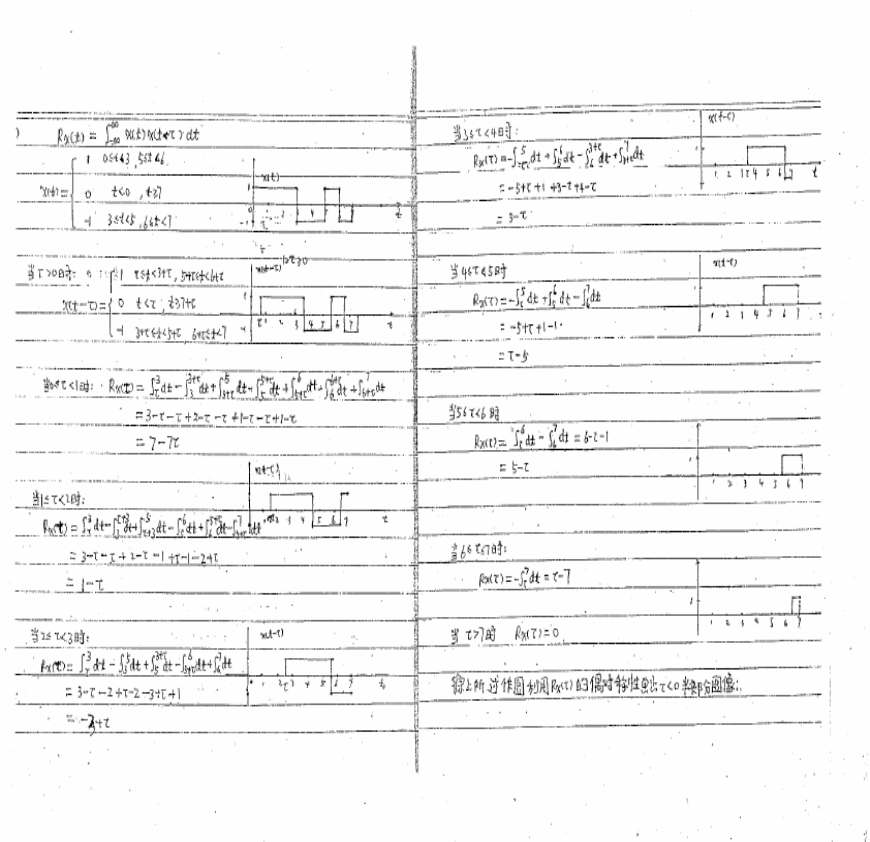 Rx(t) = ∫_{-∞}^{∞} x(t)x(t+τ)dt
x(t)= { 1 0≤t<3, 5≤t<6
0 t<0, t≥7
-1 3≤t<5, 6≤t<7
x(t)
当τ>0时:
x(t-τ)= { 1 τ≤t<3+τ, 5+τ≤t<6+τ
0 t<τ, t≥7+τ
-1 3+τ≤t<5+τ 6+τ≤t<7
x(t-τ)
τ≥0
当0≤τ<1时: Rx(τ) = ∫_τ^3 dt - ∫_3^{3+τ} dt + ∫_{3+τ}^5 dt - ∫_5^{5+τ} dt + ∫_{5+τ}^6 dt - ∫_6^{6+τ} dt + ∫_{6+τ}^7 dt
= 3-τ-τ+2-τ-τ+1-τ-τ+1-τ
= 7-7τ
x(t-τ)
当1≤τ<2时:
= 3-τ-τ+2-τ-1+τ-1-2+τ
= 1-τ
x(t-τ)
当2≤τ<3时:
Rx(τ) = ∫_τ^3 dt - ∫_3^5 dt + ∫_5^{3+τ} dt - ∫_{3+τ}^6 dt + ∫_6^7 dt
= 3-τ-2+τ-2-3+τ+1
= -3+τ
x(t-τ)
当3≤τ<4时:
Rx(τ) = -∫_τ^5 dt + ∫_5^6 dt - ∫_6^{3+τ} dt + ∫_{3+τ}^7 dt
= -5+τ+1+3-τ+4-τ
= 3-τ
x(t-τ)
当4≤τ<5时
Rx(τ) = -∫_τ^5 dt + ∫_5^6 dt - ∫_6^7 dt
= -5+τ+1-1
= τ-5
当5≤τ<6时
Rx(τ) = ∫_τ^6 dt - ∫_6^7 dt = 6-τ-1
= 5-τ
当6≤τ≤7时:
Rx(τ) = -∫_τ^7 dt = τ-7
当τ>7时 Rx(τ)=0
综上所述作图利用Rx(τ)的偶对称性画出τ<0半部分图像: